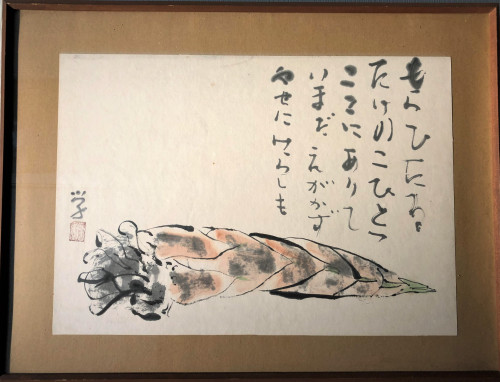 もらひたる
たけのこひとつ
ここにありて
いまだえがかず
やせにけらしも
学